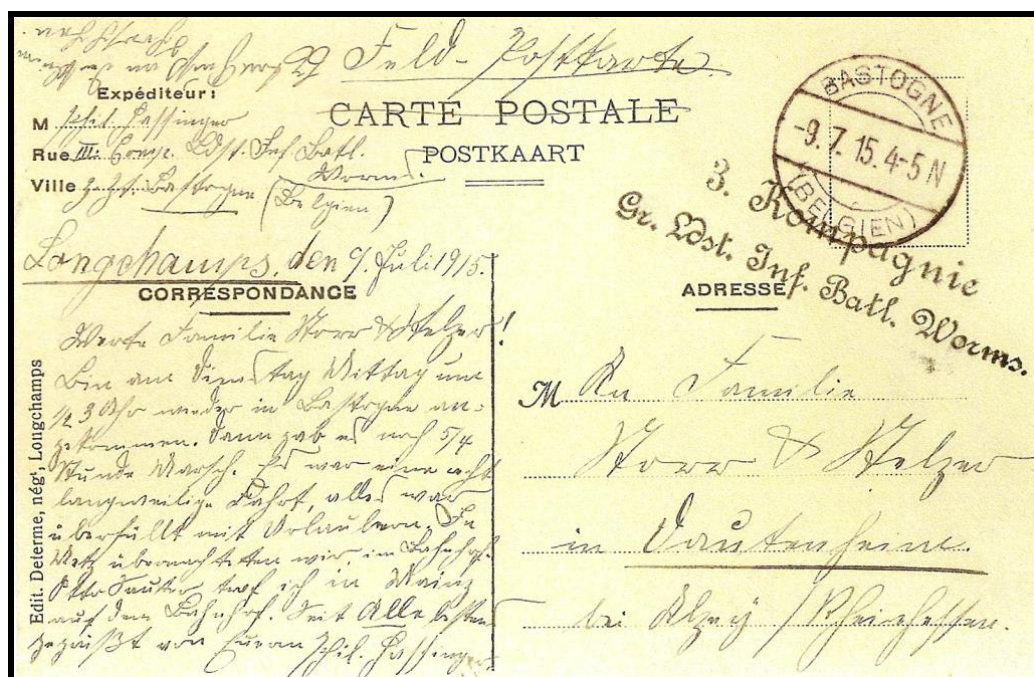 Feld-Postkarte.
Expéditeur:
CARTE POSTALE
M Phil. Hassinger
Rue III. Comp. Ldst. Inf. Batl.
POSTKAART
Worms.
Ville z. Zt. Bastogne
(Belgien)
BASTOGNE
-9.7.15.4-5N
(BELGIEN)
3. Kompagnie
Gr. Ldst. Inf. Batl. Worms.
Longchamps, den 9. Juli 1915.
CORRESPONDANCE
Werte Familie Storr & Stelzer!
Bin am Dienstag Mittag um
1/2 3 Uhr wieder in Bastogne an-
gekommen. Dann gab es noch 5/4
Stunde Marsch. Es war eine echt
langweilige Fahrt, alles war
überfüllt mit Urlaubern. In
Metz übernachteten wir im Bahnhof.
Otto Sauter traf ich in Mainz
auf dem Bahnhof. Seit Alle bestens
gegrüßt von Eurem Phil. Hassinger
Edit. Determe, négt, Longchamps
ADRESSE
M An Familie
Storr & Stelzer
in Dautenheim.
bei Alzey / Rheinhessen.